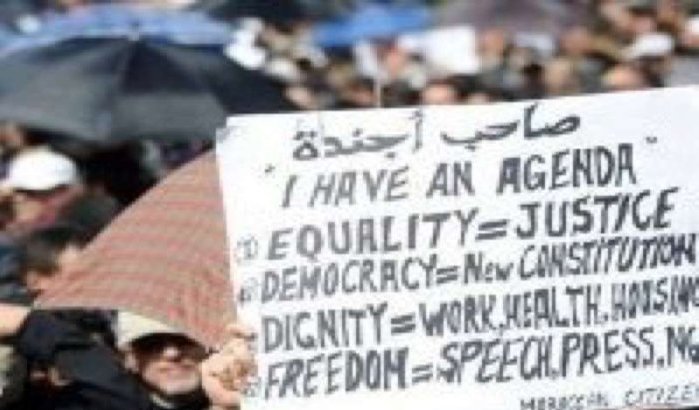 صاحب أجندة
" I HAVE AN AGENDA "
(1) EQUALITY = JUSTICE
DEMOCRACY = New CONSTITUTION
DIGNITY = WORK, HEALTH, HOUSING
FREEDOM = SPEECH, PRESS,
MOROCCAN CITIZEN